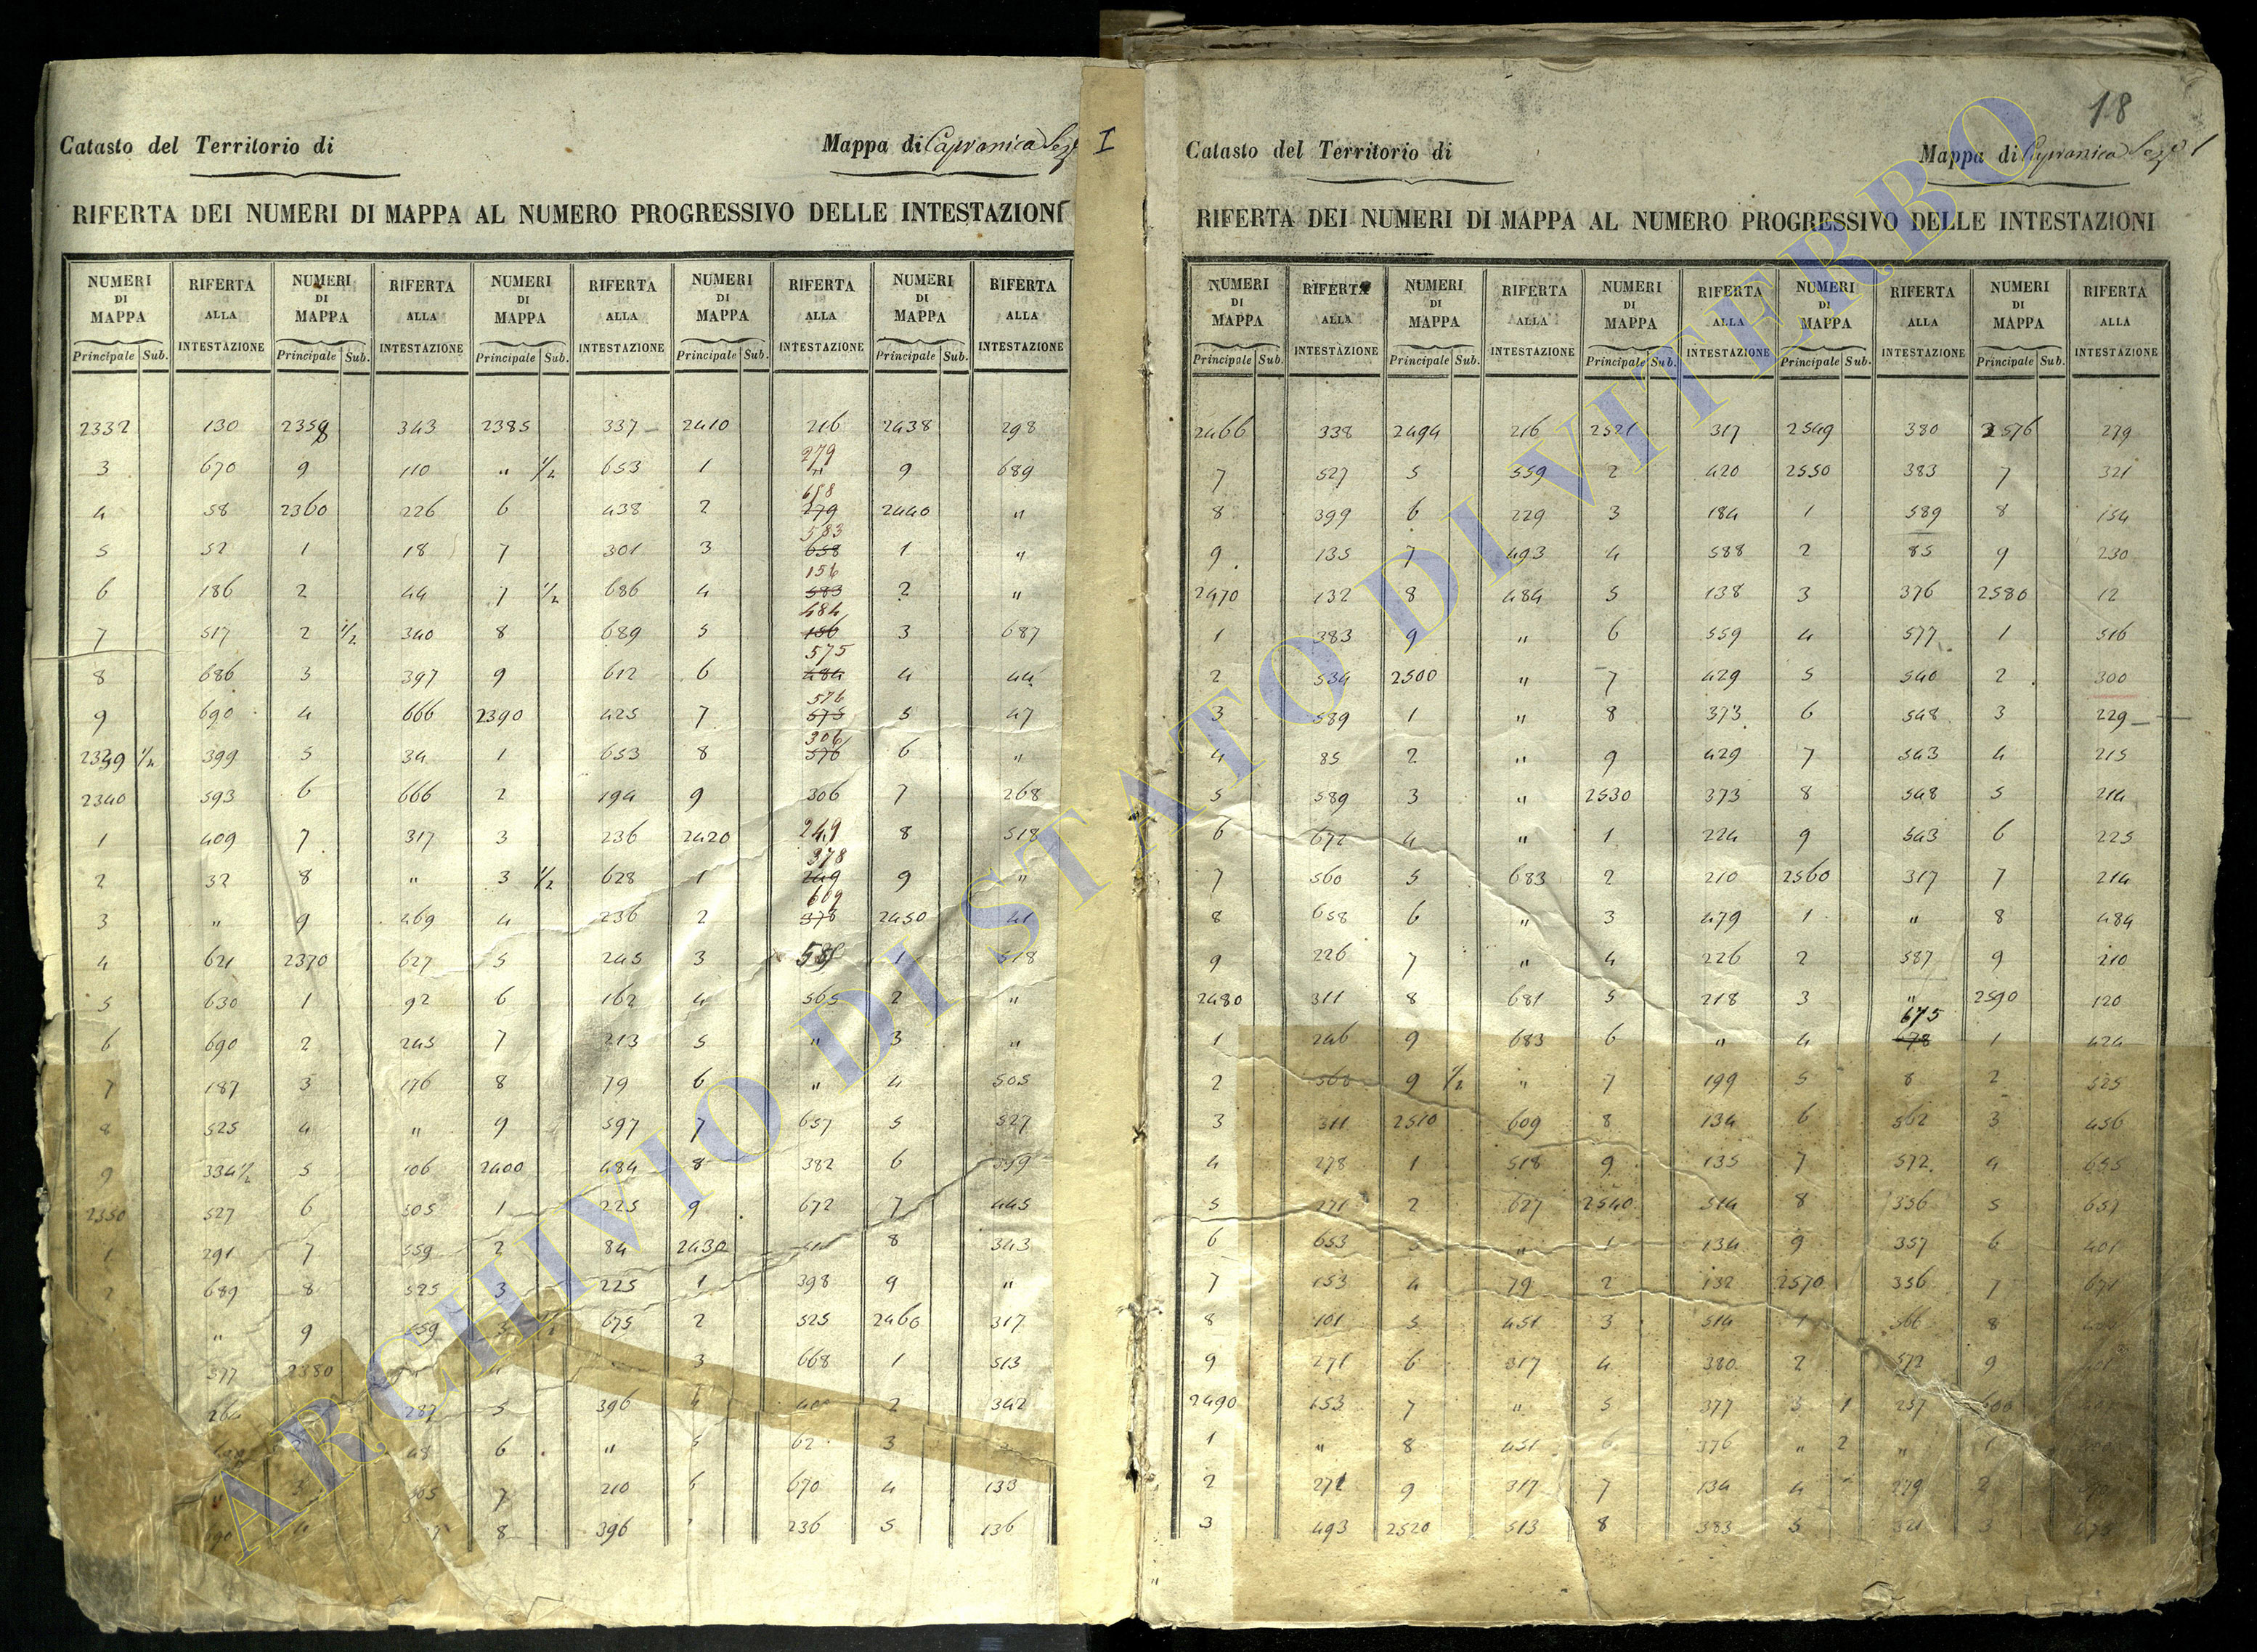 18
Catasto del Territorio di
Mappa di Capranica Sez.e I
RIFERTA DEI NUMERI DI MAPPA AL NUMERO PROGRESSIVO DELLE INTESTAZIONI
NUMERI DI MAPPA RIFERTA ALLA INTESTAZIONE NUMERI DI MAPPA RIFERTA ALLA INTESTAZIONE NUMERI DI MAPPA RIFERTA ALLA INTESTAZIONE NUMERI DI MAPPA RIFERTA ALLA INTESTAZIONE NUMERI DI MAPPA RIFERTA ALLA INTESTAZIONE
Principale Sub. Principale Sub. Principale Sub. Principale Sub. Principale Sub.
2332 130 2358 343 2385 337 2410 216 2438 298
3 670 9 110 " 1/2 653 1 279 9 689
4 58 2360 226 6 438 2 658 279 2440 "
5 52 1 18 7 301 3 583 658 1 "
6 186 2 44 7 1/2 686 4 156 583 2 "
7 517 2 1/2 340 8 689 5 484 156 3 687
8 686 3 397 9 612 6 575 484 4 44
9 690 4 666 2390 425 7 576 575 5 47
2339 1/2 399 5 34 1 653 8 306 576 6 "
2340 593 6 666 2 194 9 306 7 268
1 409 7 317 3 236 2420 249 8 518
2 32 8 " 3 1/2 628 1 378 249 9 "
3 " 9 469 4 236 2 609 378 2450 41
4 621 2370 627 5 245 3 1 518
5 630 1 92 6 162 4 565 2 "
6 690 2 245 7 213 5 " 3 "
7 187 3 176 8 79 6 " 4 505
8 525 4 " 9 597 7 657 5 527
9 334 1/2 5 106 2400 484 8 382 6
2350 527 6 305 1 225 9 672 7 445
1 291 7 559 2 84 2430 8 343
2 689 8 525 3 225 1 398 9 "
" 9 559 675 2 525 2460 317
377 2380 3 668 1 513
264 287 5 396 2 342
6 " 62 3
7 210 6 670 4 133
8 396 236 5 136
Catasto del Territorio di
Mappa di Capranica Sez.e I
RIFERTA DEI NUMERI DI MAPPA AL NUMERO PROGRESSIVO DELLE INTESTAZIONI
NUMERI DI MAPPA RIFERTA ALLA INTESTAZIONE NUMERI DI MAPPA RIFERTA ALLA INTESTAZIONE NUMERI DI MAPPA RIFERTA ALLA INTESTAZIONE NUMERI DI MAPPA RIFERTA ALLA INTESTAZIONE NUMERI DI MAPPA RIFERTA ALLA INTESTAZIONE
Principale Sub. Principale Sub. Principale Sub. Principale Sub. Principale Sub.
2466 338 2494 216 2521 317 2549 380 2576 279
7 527 5 559 2 420 2550 383 7 321
8 399 6 229 3 184 1 589 8 154
9 135 7 493 4 588 2 85 9 230
2470 132 8 484 5 138 3 376 2580 12
1 383 9 " 6 559 4 577 1 516
2 534 2500 " 7 429 5 540 2 300
3 589 1 " 8 373 6 548 3 229
4 85 2 " 9 429 7 543 4 215
5 589 3 " 2530 373 8 548 5 214
6 672 4 " 1 224 9 543 6 225
7 560 5 683 2 210 2560 317 7 214
8 658 6 " 3 479 1 " 8 484
9 226 7 " 4 226 2 587 9 210
2480 311 8 681 5 218 3 " 2590 120
1 246 9 683 6 " 4 675 678 1 424
2 568 9 1/2 " 7 199 5 8 2 525
3 311 2510 609 8 134 6 562 3 456
4 278 1 518 9 135 7 572 4 655
5 271 2 627 2540 514 8 356 5 657
6 653 3 " 1 134 9 357 6 401
7 153 4 79 2 132 2570 356 7 671
8 101 5 451 3 514 1 566 8
9 271 6 317 4 380 2 572 9
2490 153 7 " 5 377 3 1 257
1 " 8 451 6 376 " 2 " 1
2 271 9 317 7 134 4 279 2
3 493 2520 513 8 383 5 321 3
ARCHIVIO DI STATO DI VITERBO